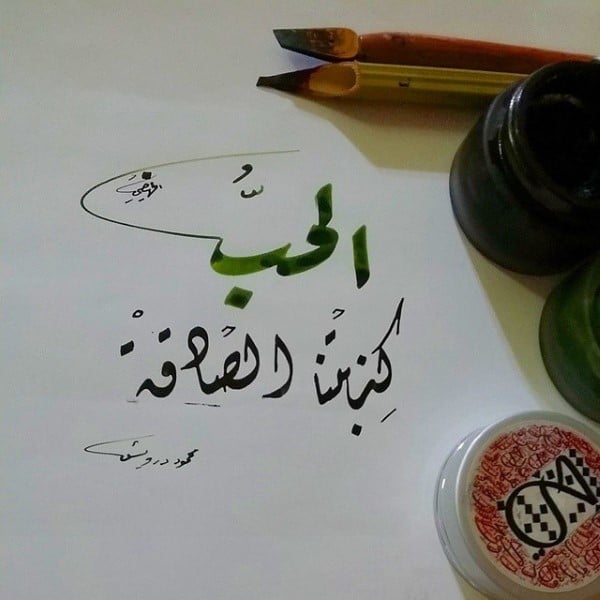 الحُبُّ
كِذبتُنا الصّادقةْ
محمود درويش